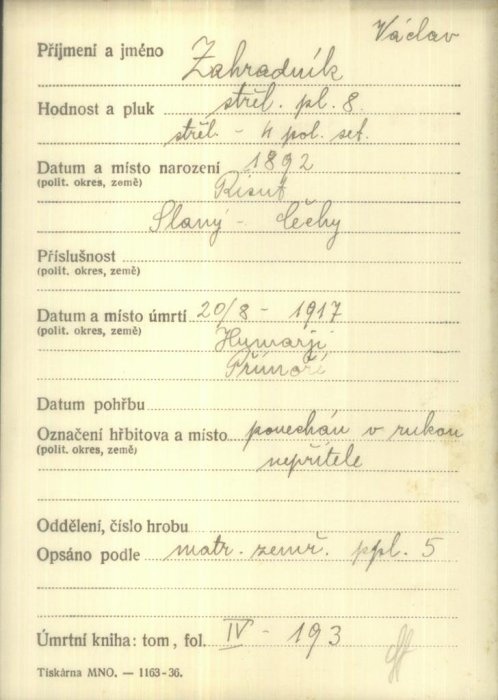 Václav
Příjmení a jméno Zahradník
Hodnost a pluk střel. pl. 8.
střel. - 4 pol. set.
Datum a místo narození 1892
(polit. okres, země) Řisut
Slaný - Čechy
Příslušnost
(polit. okres, země)
Datum a místo úmrtí 20/8 - 1917
(polit. okres, země) Humarji
Přímoří
Datum pohřbu
Označení hřbitova a místo ponechán v rukou
(polit. okres, země) nepřítele
Oddělení, číslo hrobu
Opsáno podle matr. zemř. ppl. 5
Úmrtní kniha: tom, fol. IV - 193
Tiskárna MNO. — 1163-36.